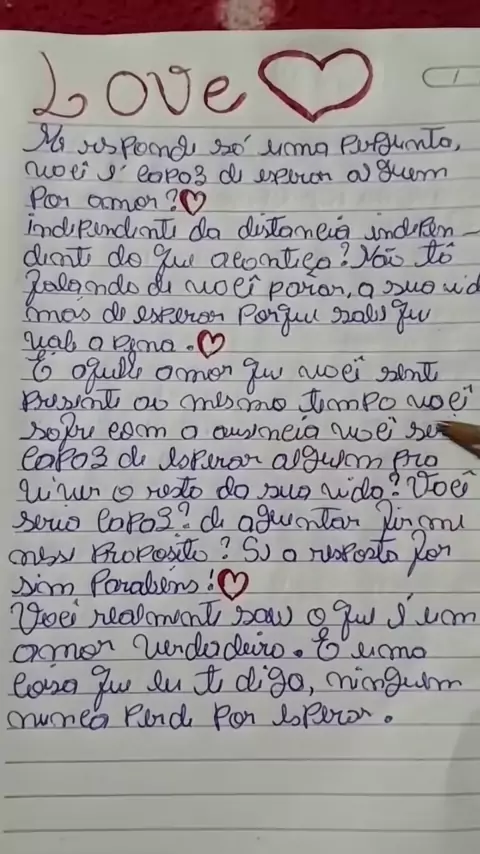 Love
Me responde só uma pergunta,
você é capaz de esperar alguem
por amor?
independente da distancia indepen-
dente do que aconteça? Não tô
falando de você parar, a sua vid
mas de esperar porque sabe que
vale a pena.
É aquele amor que você sente
presente ao mesmo tempo você
sofre com a ausencia você se
capaz de esperar alguem pra
viver o resto da sua vida? Você
seria capaz? de aguentar firme
nesse proposito? Se a resposta for
sim Parabéns!
Você realmente sabe o que é um
amor verdadeiro. É uma
coisa que eu te digo, ninguem
nunca perde por esperar.